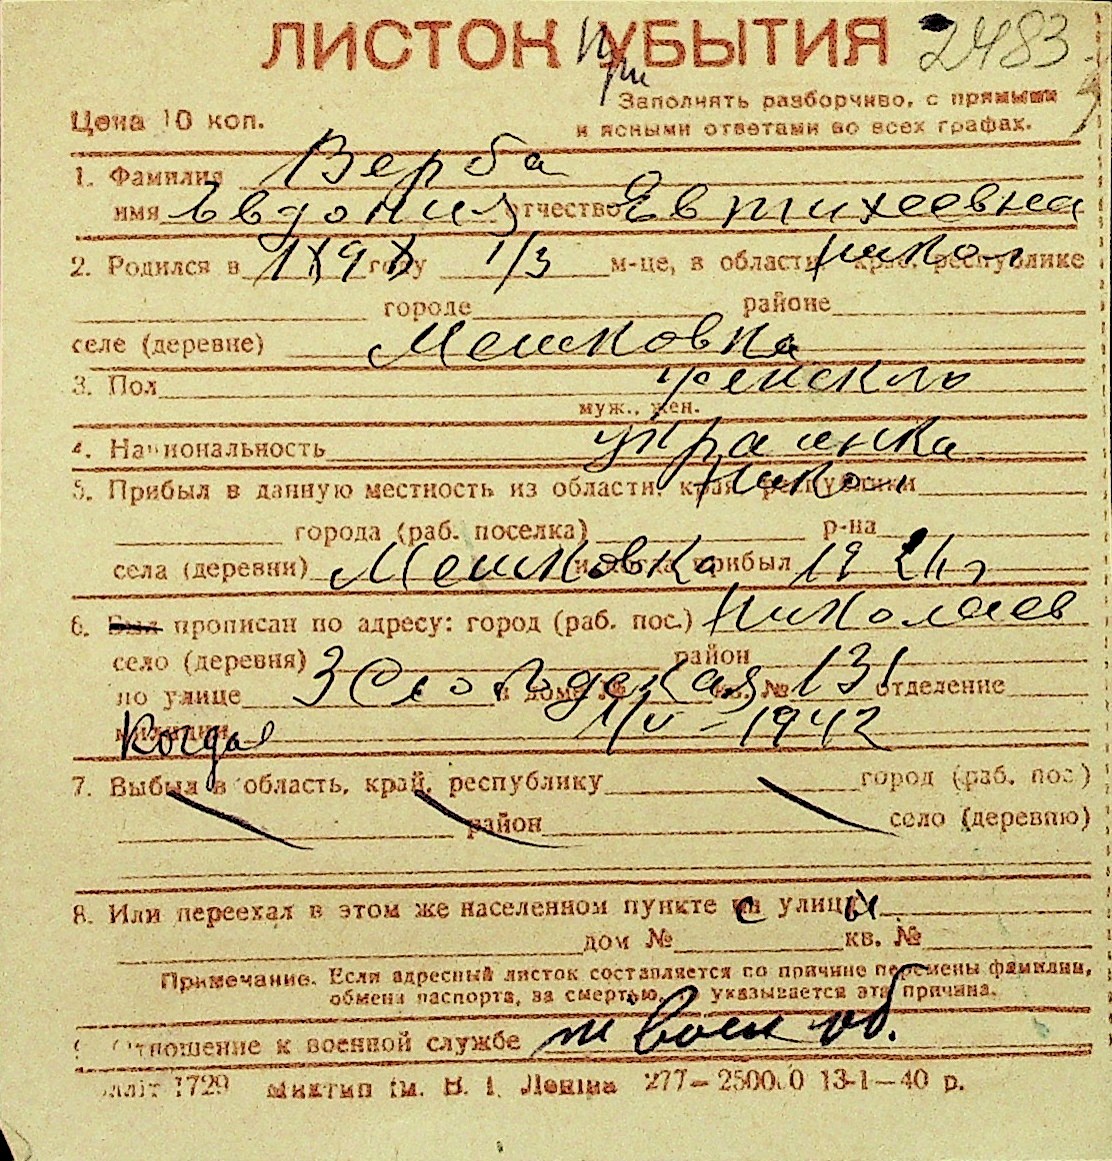 ЛИСТОК При УБЫТИЯ 2483
Заполнять разборчиво, с прямыми
Цена 10 коп.
и ясными ответами во всех графах.
1. Фамилия Верба
имя Евдокия отчество Евтихеевна
2. Родился в году 1/3 м-це, в области, крае, республике Никол
городе районе
селе (деревне) Мешковка
3. Пол женский
муж., жен.
4. Национальность украинка
5. Прибыл в данную местность из области, края, республики Никол
города (раб. поселка) р-на
села (деревни) Мешковка и когда прибыл 1921 г
6. Был прописан по адресу: город (раб. пос.) Николаев
село (деревня) район
по улице 3 Слободская в доме № кв. № 131 отделение
милиции Когда 1/V - 1942
7. Выбыл в область, край, республику город (раб. пос)
район село (деревню)
8. Или переехал в этом же населенном пункте на улицу с ы
дом № кв. №
Примечание. Если адресный листок составляется по причине перемены фамилии,
обмена паспорта, за смертью, указывается эта причина.
Отношение к военной службе н воен об.
1729 Миктип ім. В. І. Леніна 277-250000 13-1-40 р.